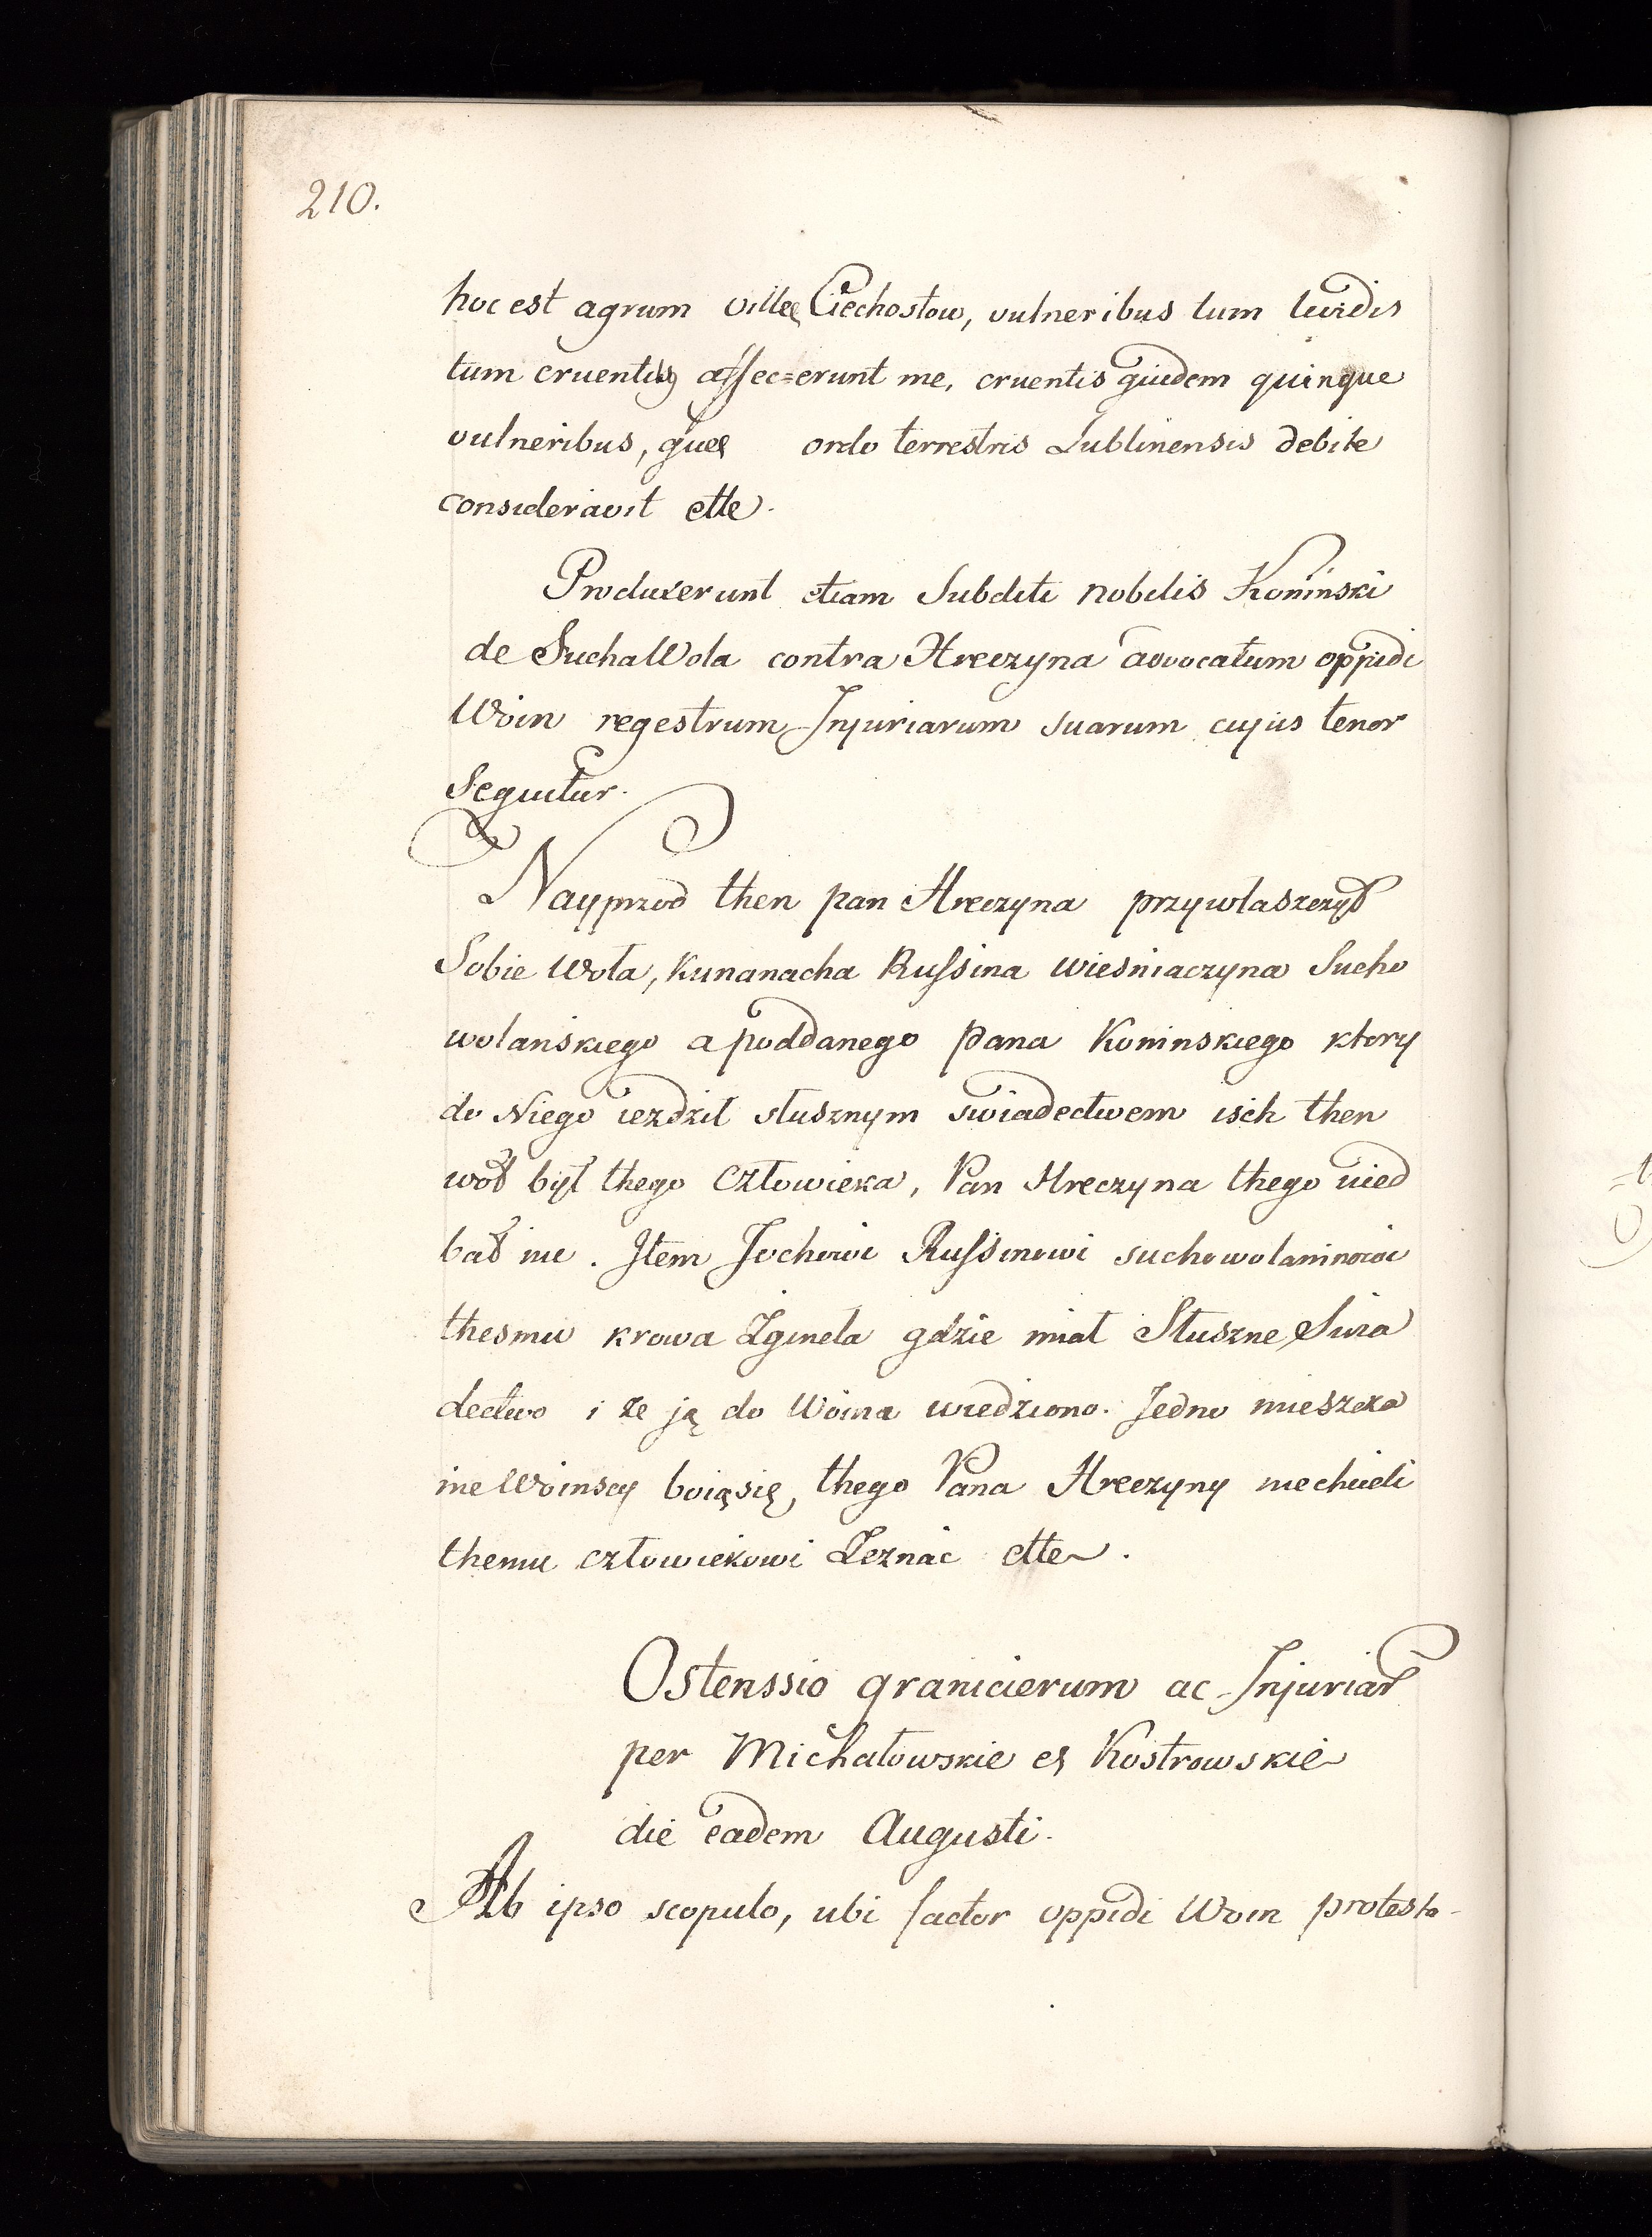 210.
hoc est agrum villę Ciechostow, vulneribus tum lividis
tum cruentis affec=erunt me, cruentis quidem quinque
vulneribus, quę ordo terrestris Lublinensis debite
consideravit ette.
Produxerunt etiam Subditi nobilis Koninski
de Sucha Wola contra Hreczyna advocatum oppidi
Woin regestrum Injuriarum suarum cujus tenor
Sequitur.
Nayprzod then pan Hreczyna przywlaszczył
Sobie Wola, Kunanacha Russina wiesniaczyna Sucho
wolanskiego a poddanego pana Koninskiego ktory
do Niego iezdził słusznym swiadectwem isch then
wół był thego Człowieka, Pan Hreczyna thego nied
bał nic. Item Jochowi Russinowi suchowolaninowi
thesmu krowa Zginela gdzie miał Słuszne Swia
dectwo i ze ją do Woina wiedziono. Jedno mieszcza
nie Woinscy boią się, thego Pana Hreczyny niechcieli
themu człowiekowi Zeznac ette.
Ostenssio granicierum ac Injuriar
per Michałowskie et Kostrowskie
die eadem Augusti.
Ab ipso scopulo, ubi factor oppidi Woin protesta-